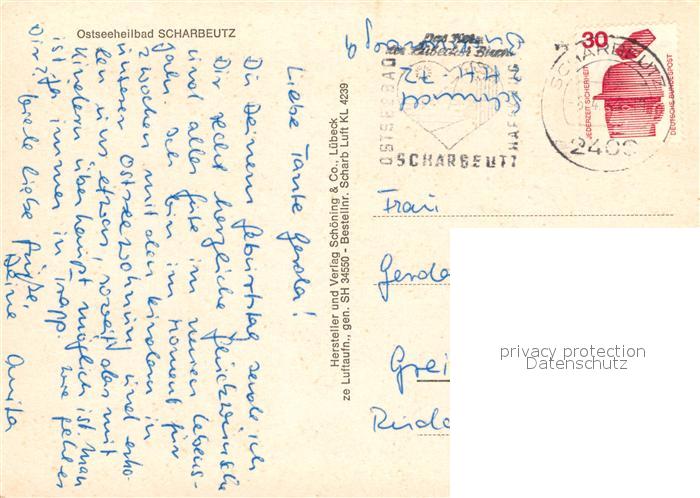 Ostseeheilbad SCHARBEUTZ
Liebe Tante Gerda!
Zu Deinem Geburtstag sende ich
Dir recht herzliche Glückwünsche
und alles Gute im neuen Lebens-
jahr. Ich bin im Moment für
zwei Wochen mit den Kindern in
unserer Ostseewohnung und erho-
len uns etwas, soweit das mit
Kindern überhaupt möglich ist. Man
ist ja immer in Trapp. Wie geht es
Dir?
Viele liebe Grüße
Deine Anita
Hersteller und Verlag Schöning & Co., Lübeck
ze Luftaufn., gen. SH 34550 - Bestellnr. Scharb Luft KL 4239
Schmidt
OSTSEEBAD
HAFFKRUG
SCHARBEUTZ
SCHARBEUTZ
2409
30
JEDERZEIT SICHERHEIT
DEUTSCHE BUNDESPOST
Frau
Gerda
privacy protection
Datenschutz